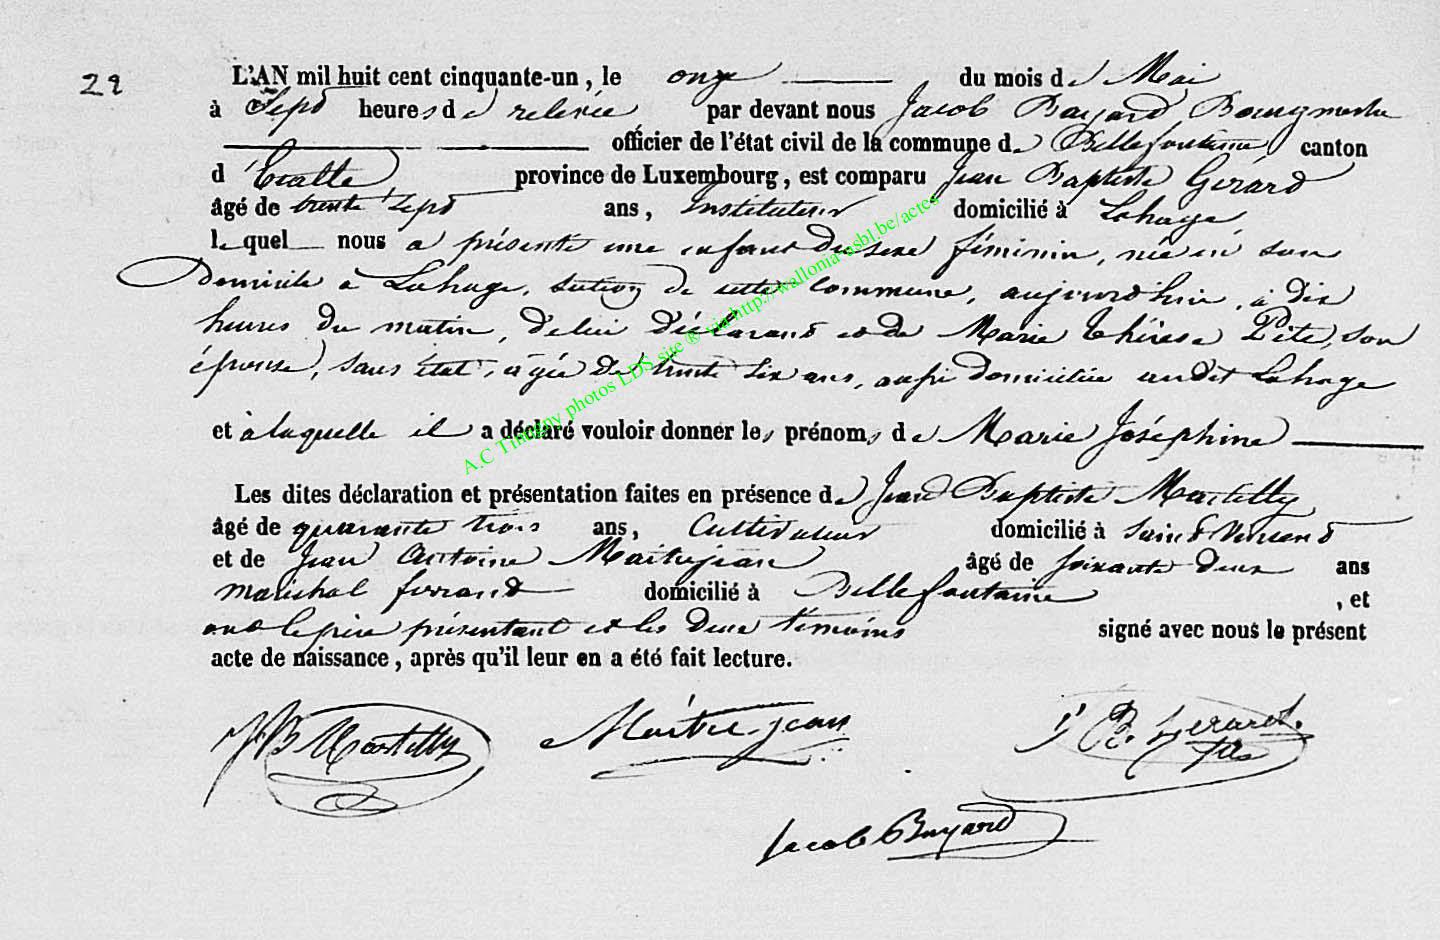 22
L'AN mil huit cent cinquante-un, le onze du mois de Mai
à Sept heures de relevée par devant nous Jacob Bayard Bourgmestre
officier de l'état civil de la commune de Bellefontaine canton
d'Etalle province de Luxembourg, est comparu Jean Baptiste Gérard
âgé de trente Sept ans, Instituteur domicilié à Lahage
lequel nous a présenté une enfant du sexe féminin, née en son
Domicile à Lahage, section de cette Commune, aujourd'hui, à dix
heures du matin, de lui déclarant et de Marie Thérèse Pète, son
épouse, sans état, agée de trente six ans, aussi domiciliée audit Lahage
et à laquelle il a déclaré vouloir donner les prénoms de Marie Joséphine
Les dites déclaration et présentation faites en présence de Jean Baptiste Martilly
âgé de quarante trois ans, Cultivateur domicilié à Saint Vincent
et de Jean Antoine Maitrejean âgé de soixante deux ans
maréchal ferrand domicilié à Bellefontaine, et
ont le père présentant et les deux témoins signé avec nous le présent
acte de naissance, après qu'il leur en a été fait lecture.
JB Martilly Maitre-jean J B. Gerard. fils
Jacob Bayard
A.C Tintigny photos LDS site ® via http://wallonia-asbl.be/actes